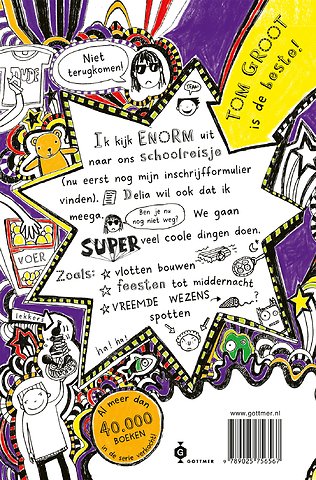 DUDE
Niet
terugkomen!
TOM GROOT
is de beste!
Ik kijk ENORM uit
naar ons schoolreisje
(nu eerst nog mijn inschrijfformulier
vinden). Delia wil ook dat ik
meega.
Ben je nu
nog niet weg?
We gaan
SUPER veel coole dingen doen.
Zoals: vlotten bouwen
feesten tot middernacht
VREEMDE WEZENS ?
spotten
VOER
lekker
ha! ha!
Al meer dan
40.000
BOEKEN
in de serie verkocht!
G
GOTTMER
www.gottmer.nl
9789025756567